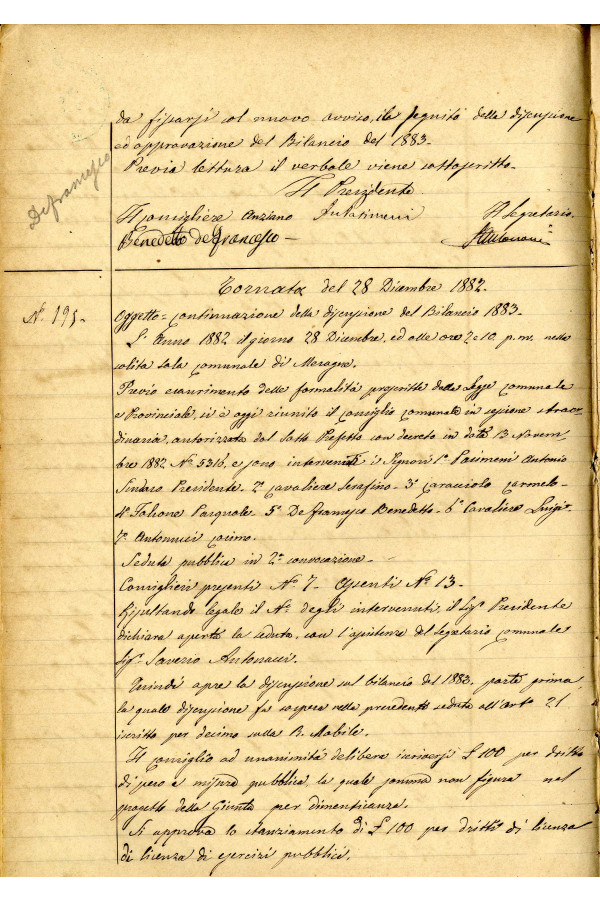 da fissarsi col nuovo avviso, ila seguito della discussione
ed approvazione del Bilancio del 1883.
Previa lettura il verbale viene sottoscritto.
Il Presidente
Il Consigliere Anziano
Il Segretario
Benedetto de Francesco
Defrancesco
Tornata del 28 Dicembre 1882.
N.° 195.
Oggetto = continuazione della discussione del Bilancio 1883.
L'Anno 1882 il giorno 28 Dicembre, ed alle ore 2 e 10. p.m. nella
solita sala comunale di Mesagne.
Previo esaurimento delle formalità prescritte dalla Legge comunale
e Provinciale, si è oggi riunito il Consiglio comunale in sessione straor-
dinaria, autorizzata dal Sotto Prefetto con decreto in data 13 Novem-
bre 1882 N.° 5316, e sono intervenuti i Signori 1.° Pasimeni Antonio
Sindaco Presidente. 2.° Cavaliere Serafino. 3.° Caracciolo Carmelo.
4.° Falcone Pasquale. 5.° De francesco Benedetto. 6.° Cavaliere Luigi.
7.° Antonucci Cosimo.
Seduta pubblica in 2.a convocazione.
Consiglieri presenti N.° 7. Assenti N.° 13.
Risultando legale il N.° degli intervenuti, il Sig.r Presidente
dichiara aperta la seduta, con l'assistenza del Segretario comunale
Sig.r Saverio Antonucci.
Quindi apre la discussione sul bilancio del 1883. parte prima,
la quale discussione fu sospesa nella precedente seduta all'art.° 21
iscritto per decimo sulla R. Mobile.
Il Consiglio ad unanimità delibera iscriversi £ 100 per dritto
di peso e misura pubblica, la quale somma non figura nel
progetto della Giunta per dimenticanza.
Si approva lo stanziamento di £ 100 per dritto di licenza
di licenza di esercizi pubblici.